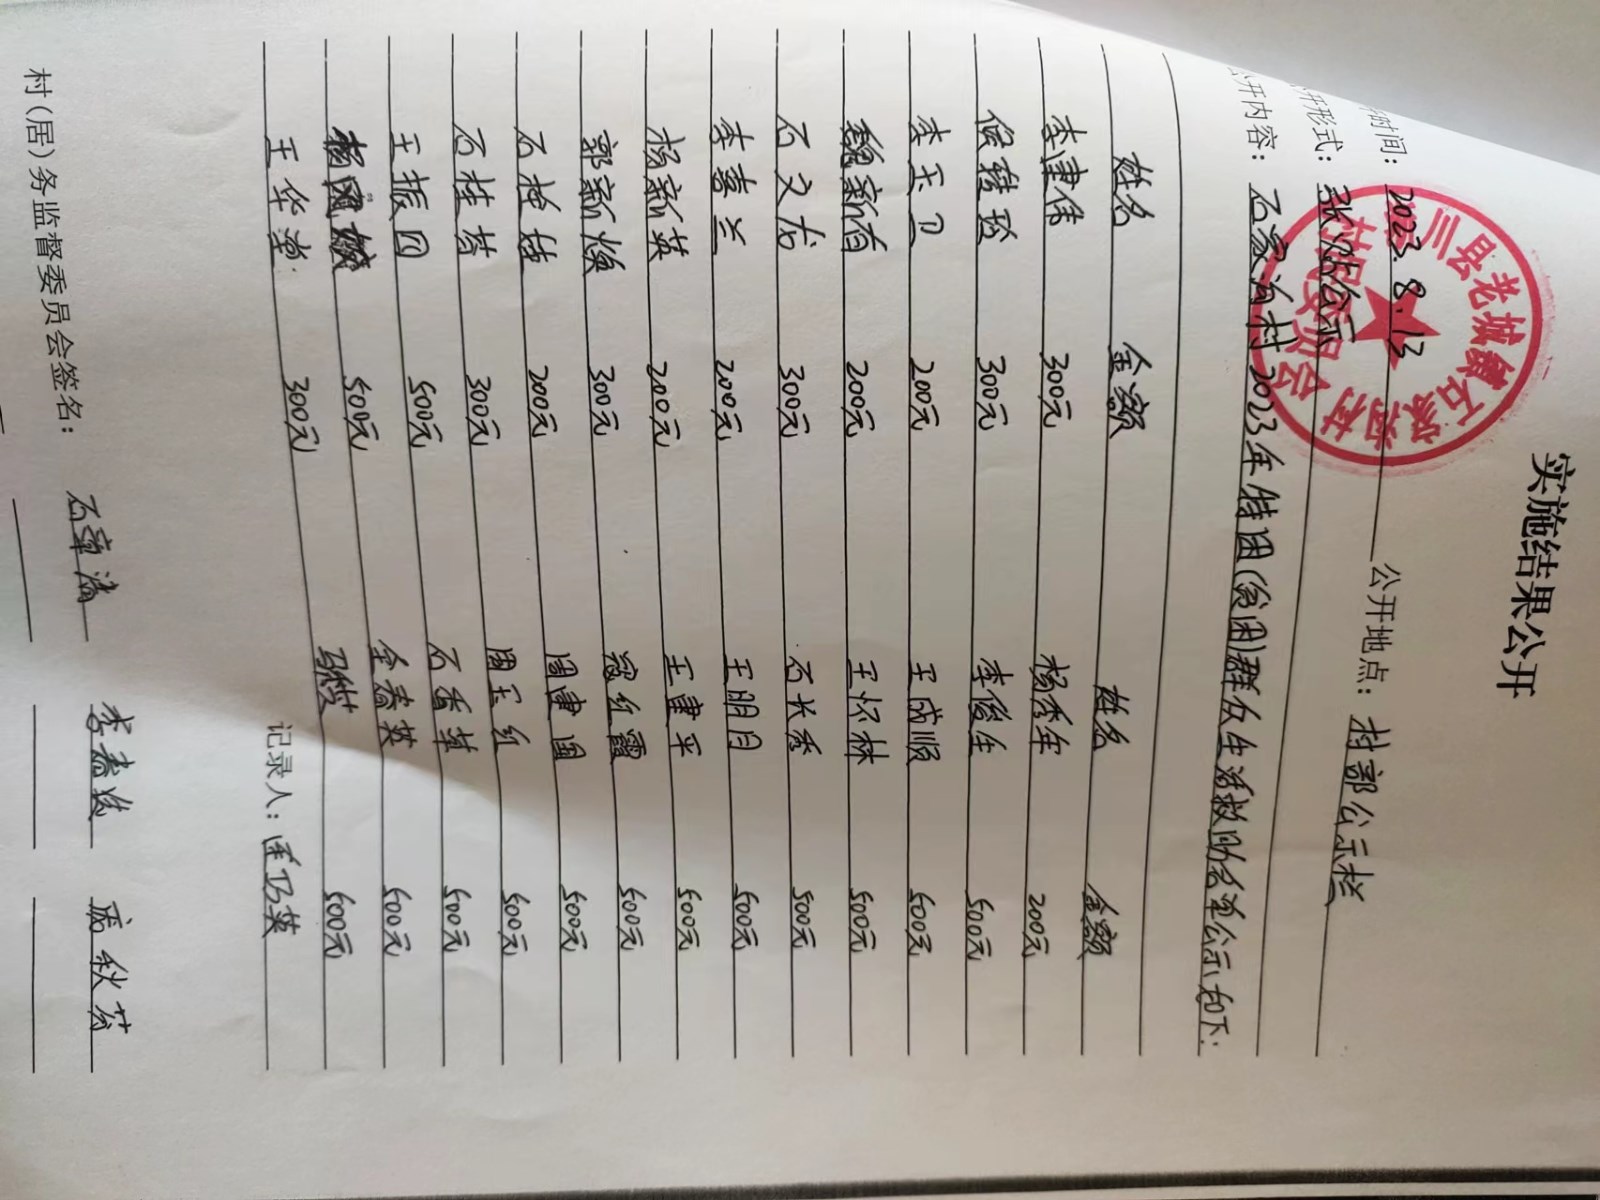 实施结果公开
时间：2023.8.13 公开地点：村部公示栏
公开形式：张贴公示
公开内容：石家沟村2023年特困(贫困)群众生活救助名单公示如下：
姓名 金额 姓名 金额
李建伟 300元 杨秀年 200元
侯 300元 李俊生 500元
李玉卫 200元 王成顺 500元
魏新有 200元 王怀林 500元
石文龙 300元 石长秀 500元
李喜兰 200元 王明月 500元
杨新英 200元 王建平 500元
郭新焕 300元 寇红霞 500元
石 200元 周建国 500元
石桂芳 300元 周玉红 500元
王振回 500元 石香草 500元
杨 500元 全春英 500元
王华 300元 500元
记录人：
村(居)务监督委员会签名：石章涛 李春 秋芬
三县老城镇石家沟村
村民委员会